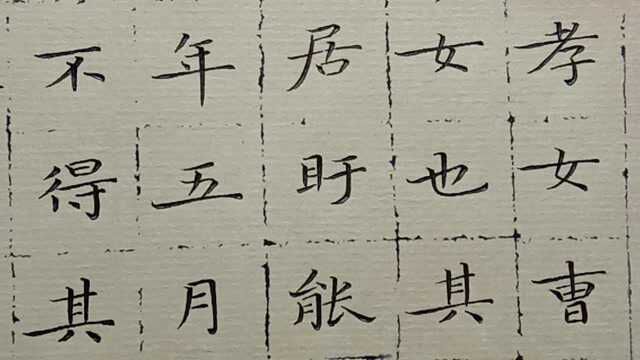 孝女曺
女也其
居盱能
年五月
不得其